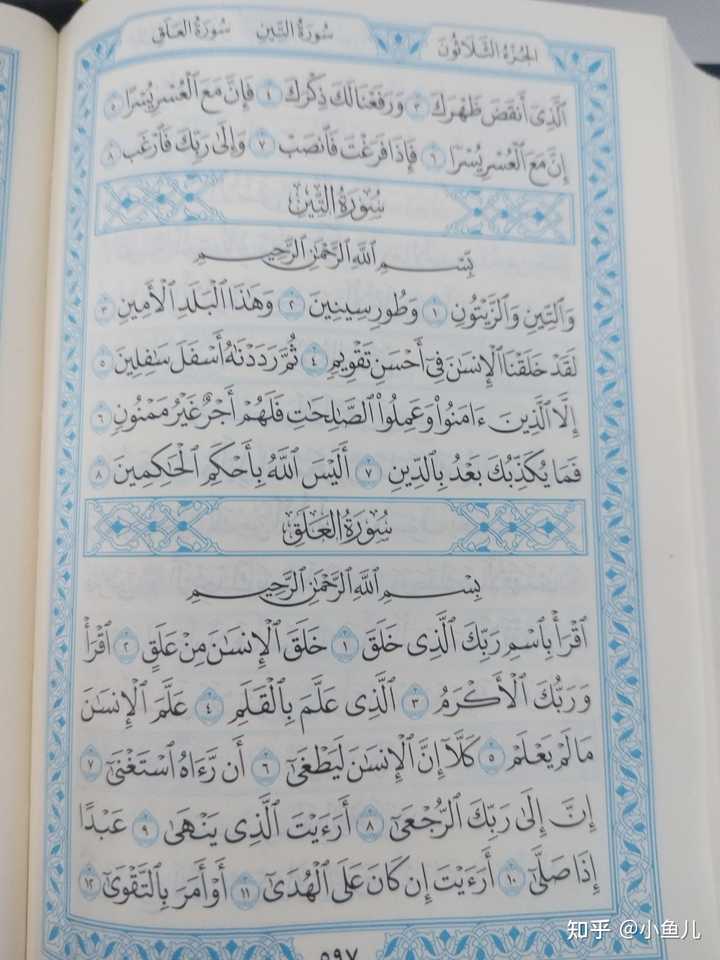 الجُزْءُ الثَّلَاثُونَ سُورَةُ التِّينِ سُورَةُ العَلَقِ
ٱلَّذِىٓ أَنقَضَ ظَهْرَكَ ٣ وَرَفَعْنَا لَكَ ذِكْرَكَ ٤ فَإِنَّ مَعَ ٱلْعُسْرِ يُسْرًا ٥
إِنَّ مَعَ ٱلْعُسْرِ يُسْرًا ٦ فَإِذَا فَرَغْتَ فَٱنصَبْ ٧ وَإِلَىٰ رَبِّكَ فَٱرْغَب ٨
سُورَةُ التِّينِ
بِسْمِ ٱللَّهِ ٱلرَّحْمَٰنِ ٱلرَّحِيمِ
وَٱلتِّينِ وَٱلزَّيْتُونِ ١ وَطُورِ سِينِينَ ٢ وَهَٰذَا ٱلْبَلَدِ ٱلْأَمِينِ ٣
لَقَدْ خَلَقْنَا ٱلْإِنسَٰنَ فِىٓ أَحْسَنِ تَقْوِيمٍ ٤ ثُمَّ رَدَدْنَٰهُ أَسْفَلَ سَٰفِلِينَ ٥
إِلَّا ٱلَّذِينَ ءَامَنُوا۟ وَعَمِلُوا۟ ٱلصَّٰلِحَٰتِ فَلَهُمْ أَجْرٌ غَيْرُ مَمْنُونٍ ٦
فَمَا يُكَذِّبُكَ بَعْدُ بِٱلدِّينِ ٧ أَلَيْسَ ٱللَّهُ بِأَحْكَمِ ٱلْحَٰكِمِينَ ٨
سُورَةُ العَلَقِ
بِسْمِ ٱللَّهِ ٱلرَّحْمَٰنِ ٱلرَّحِيمِ
ٱقْرَأْ بِٱسْمِ رَبِّكَ ٱلَّذِى خَلَقَ ١ خَلَقَ ٱلْإِنسَٰنَ مِنْ عَلَقٍ ٢ ٱقْرَأْ
وَرَبُّكَ ٱلْأَكْرَمُ ٣ ٱلَّذِى عَلَّمَ بِٱلْقَلَمِ ٤ عَلَّمَ ٱلْإِنسَٰنَ
مَا لَمْ يَعْلَمْ ٥ كَلَّآ إِنَّ ٱلْإِنسَٰنَ لَيَطْغَىٰٓ ٦ أَن رَّءَاهُ ٱسْتَغْنَىٰٓ ٧
إِنَّ إِلَىٰ رَبِّكَ ٱلرُّجْعَىٰٓ ٨ أَرَءَيْتَ ٱلَّذِى يَنْهَىٰ ٩ عَبْدًا
إِذَا صَلَّىٰٓ ١٠ أَرَءَيْتَ إِن كَانَ عَلَى ٱلْهُدَىٰٓ ١١ أَوْ أَمَرَ بِٱلتَّقْوَىٰٓ ١٢
٥٩٧
知乎 @小鱼儿